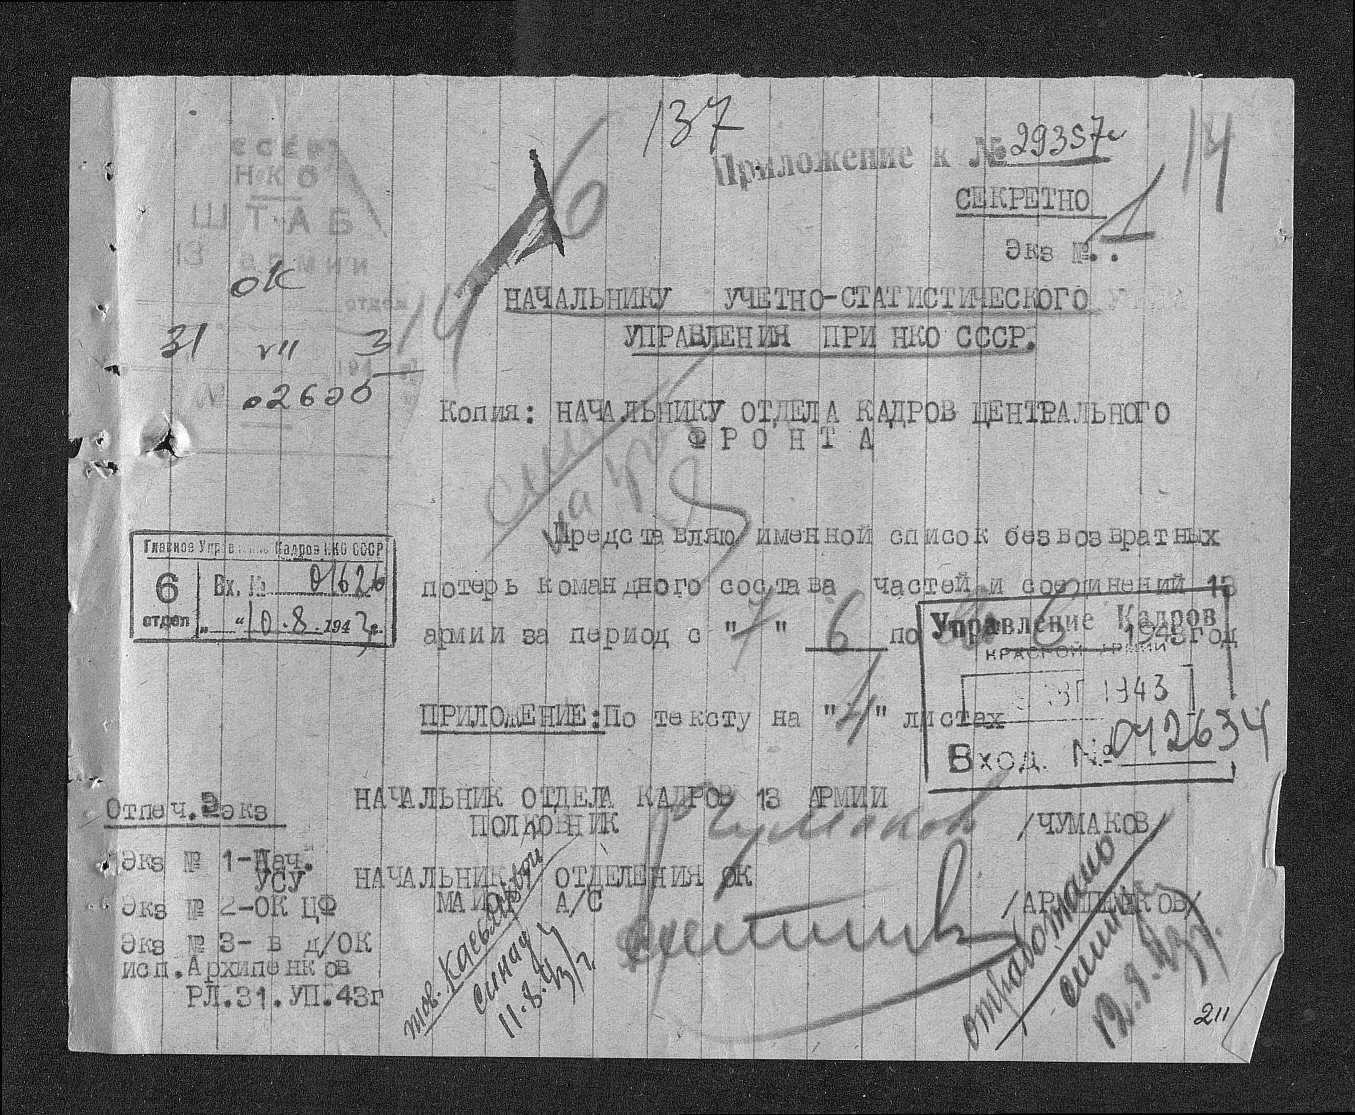 137
Приложение к № 29357с
14
СЕКРЕТНО
Экз №. 1
6
14
СССР
НКО
ШТАБ
13 армии
ОК
отдел
31 VII 3
№ 02600
НАЧАЛЬНИКУ УЧЕТНО-СТАТИСТИЧЕСКОГО
УПРАВЛЕНИЯ ПРИ НКО СССР.
Копия: НАЧАЛЬНИКУ ОТДЕЛА КАДРОВ ЦЕНТРАЛЬНОГО
ФРОНТА
Представляю именной список безвозвратных
потерь командного состава частей и соединений 13
армии за период с "7" 6 по 6 1943год
Главное Управление Кадров НКО СССР
6 отдел
Вх. № 01626
"__" 10.8.1943г.
Управление Кадров
КРАСНОЙ АРМИИ
1943
Вход. № 042634
ПРИЛОЖЕНИЕ: По тексту на "4" листах
НАЧАЛЬНИК ОТДЕЛА КАДРОВ 13 АРМИИ
ПОЛКОВНИК Чумаков /ЧУМАКОВ/
НАЧАЛЬНИК ОТДЕЛЕНИЯ ОК
МАЙОР А/С /АРХИПЕНКОВ/
Отпеч. 3 экз
Экз № 1-Нач.
УСУ
Экз № 2-ОК ЦФ
Экз № 3- в д/ОК
исп. Архипенков
РЛ.31.УП.43г
тов.
11.8.43г.
отработано
12.8.43г.
211